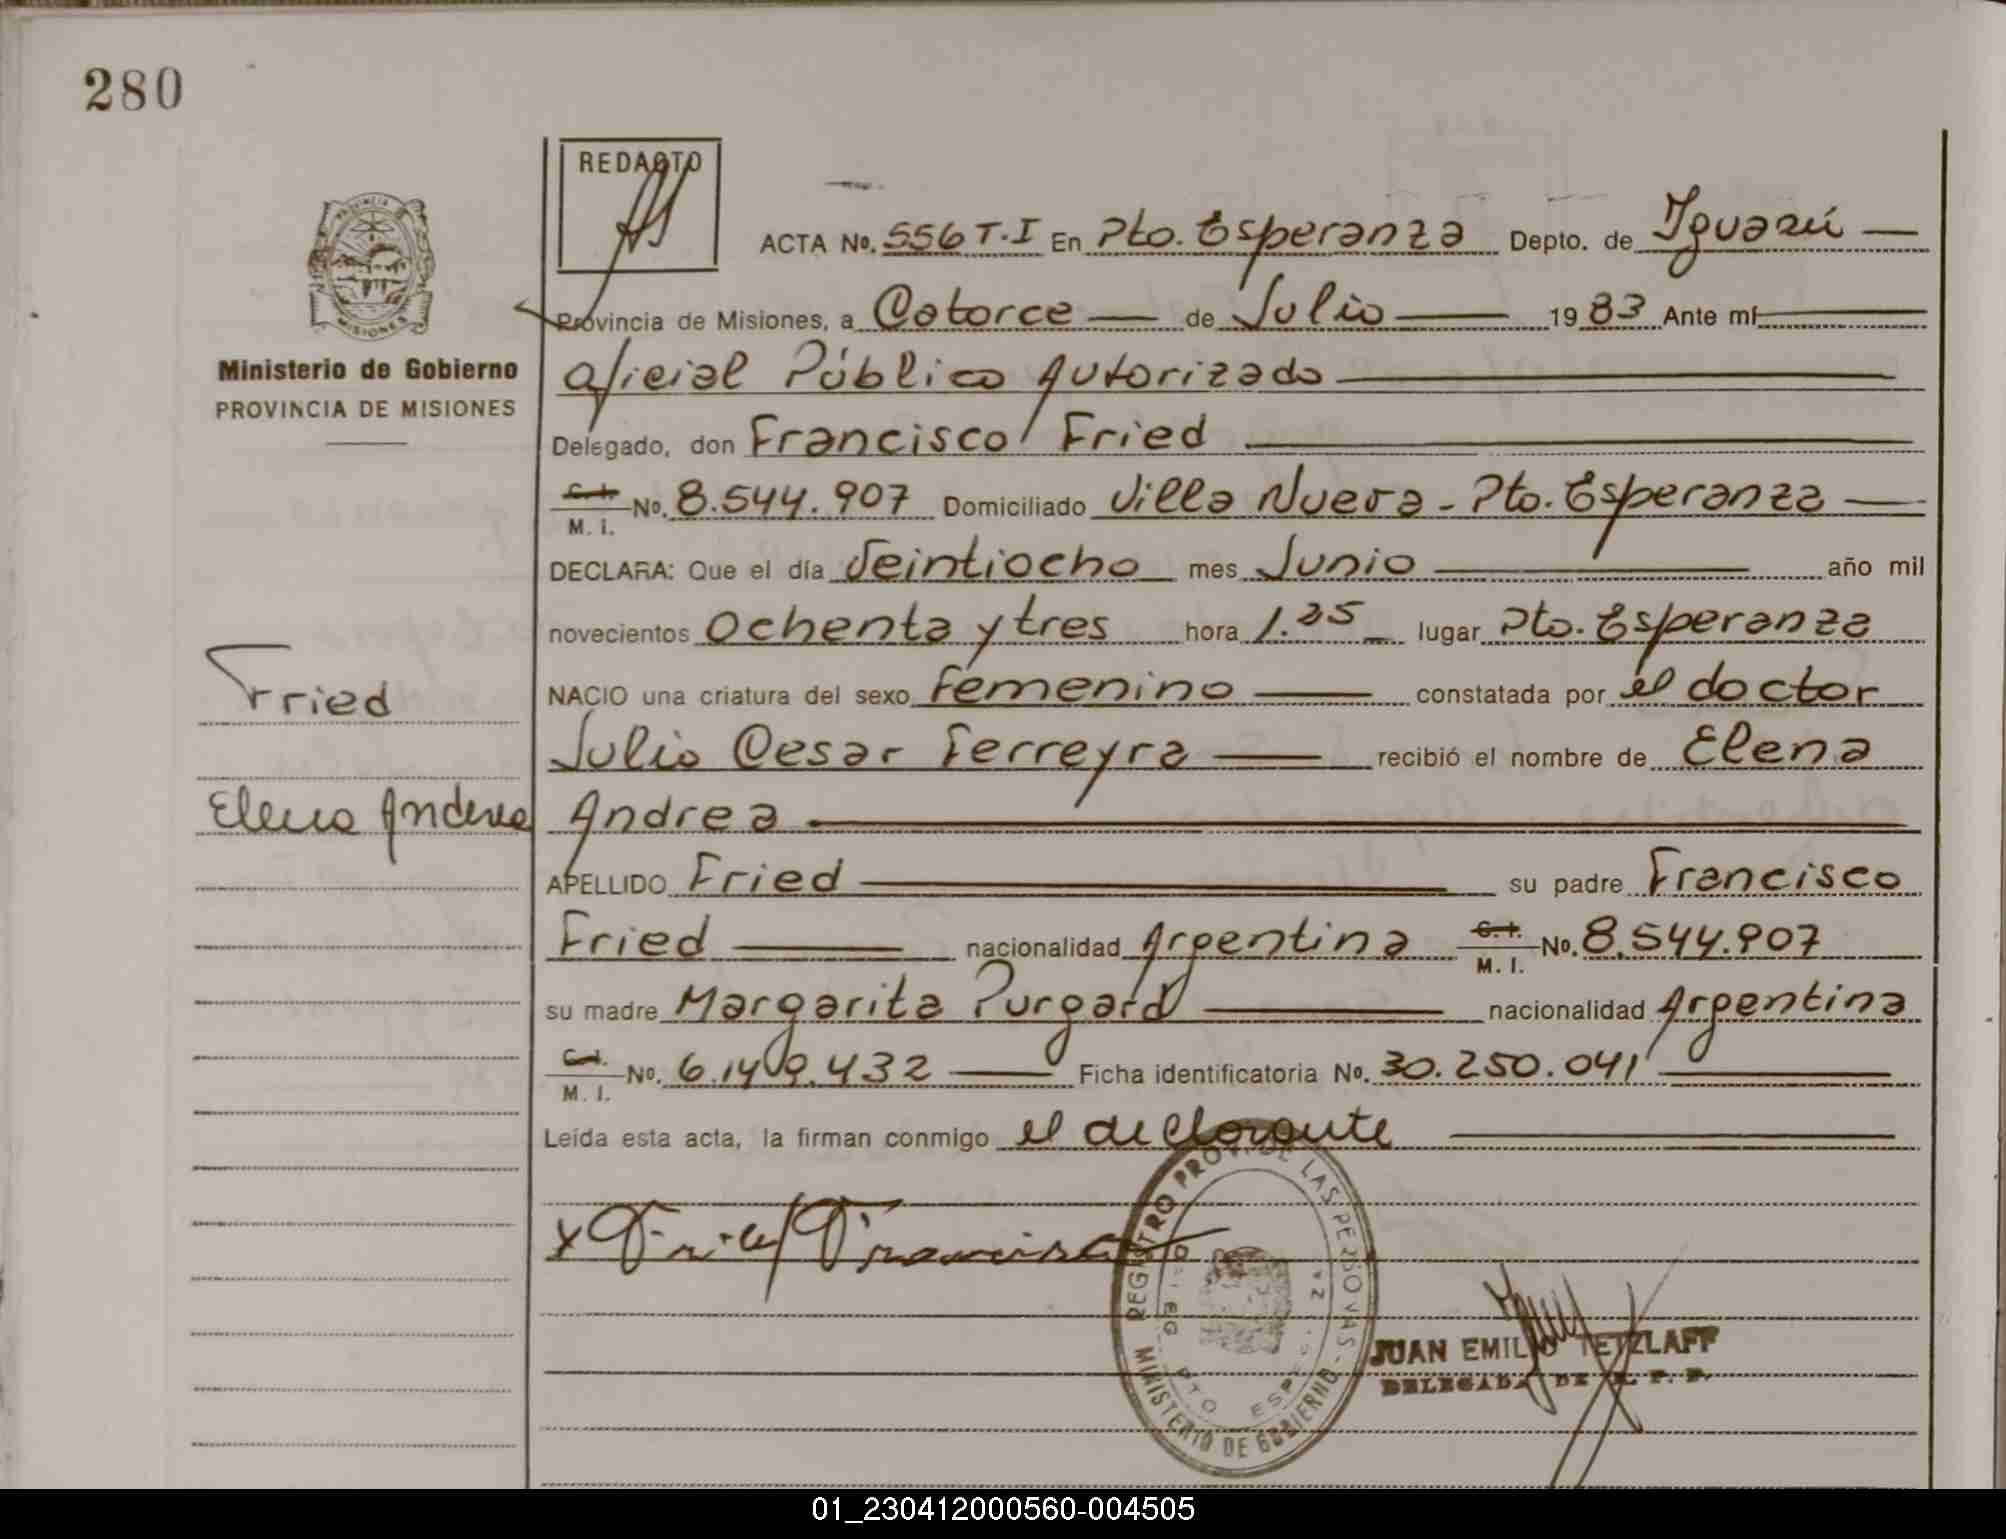 280
REDACTO
ACTA No. 556 T.I En Pto. Esperanza Depto. de Iguazú
Provincia de Misiones, a Catorce de Julio 1983 Ante mí
Ministerio de Gobierno
PROVINCIA DE MISIONES
Oficial Público Autorizado
Delegado, don Francisco Fried
C. I. M. I. No. 8.544.907 Domiciliado Villa Nueva - Pto. Esperanza
DECLARA: Que el día Veintiocho mes Junio año mil
novecientos Ochenta y tres hora 1.25 lugar Pto. Esperanza
Fried
NACIO una criatura del sexo Femenino constatada por el doctor
Julio Cesar Ferreyra recibió el nombre de Elena
Elena Andrea
Andrea
APELLIDO Fried su padre Francisco
Fried nacionalidad Argentina C. I. M. I. No. 8.544.907
su madre Margarita Purgard nacionalidad Argentina
C. I. M. I. No. 6.149.432 Ficha identificatoria No. 30.250.041
Leída esta acta, la firman conmigo el declarante
x Fried Francisco
REGISTRO PROV. DE LAS PERSONAS - MINISTERIO DE GOBIERNO
PTO ESPE
JUAN EMILIO TETZLAFF
DELEGADO DE R. P. P.
PROVINCIA DE MISIONES
01_230412000560-004505